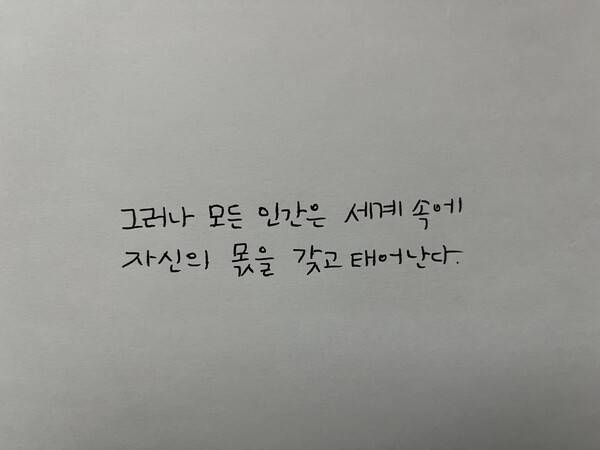 그러나 모든 인간은 세계 속에
자신의 몫을 갖고 태어난다.